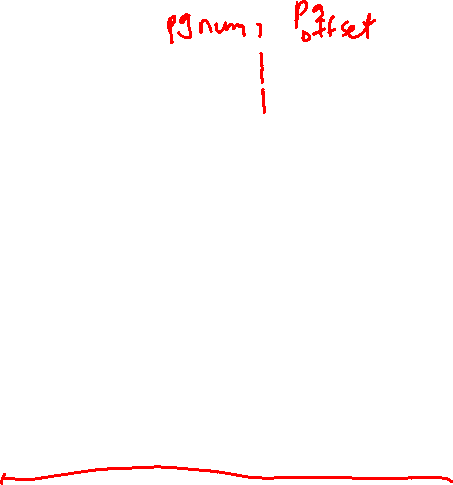 pgnum, pg offset